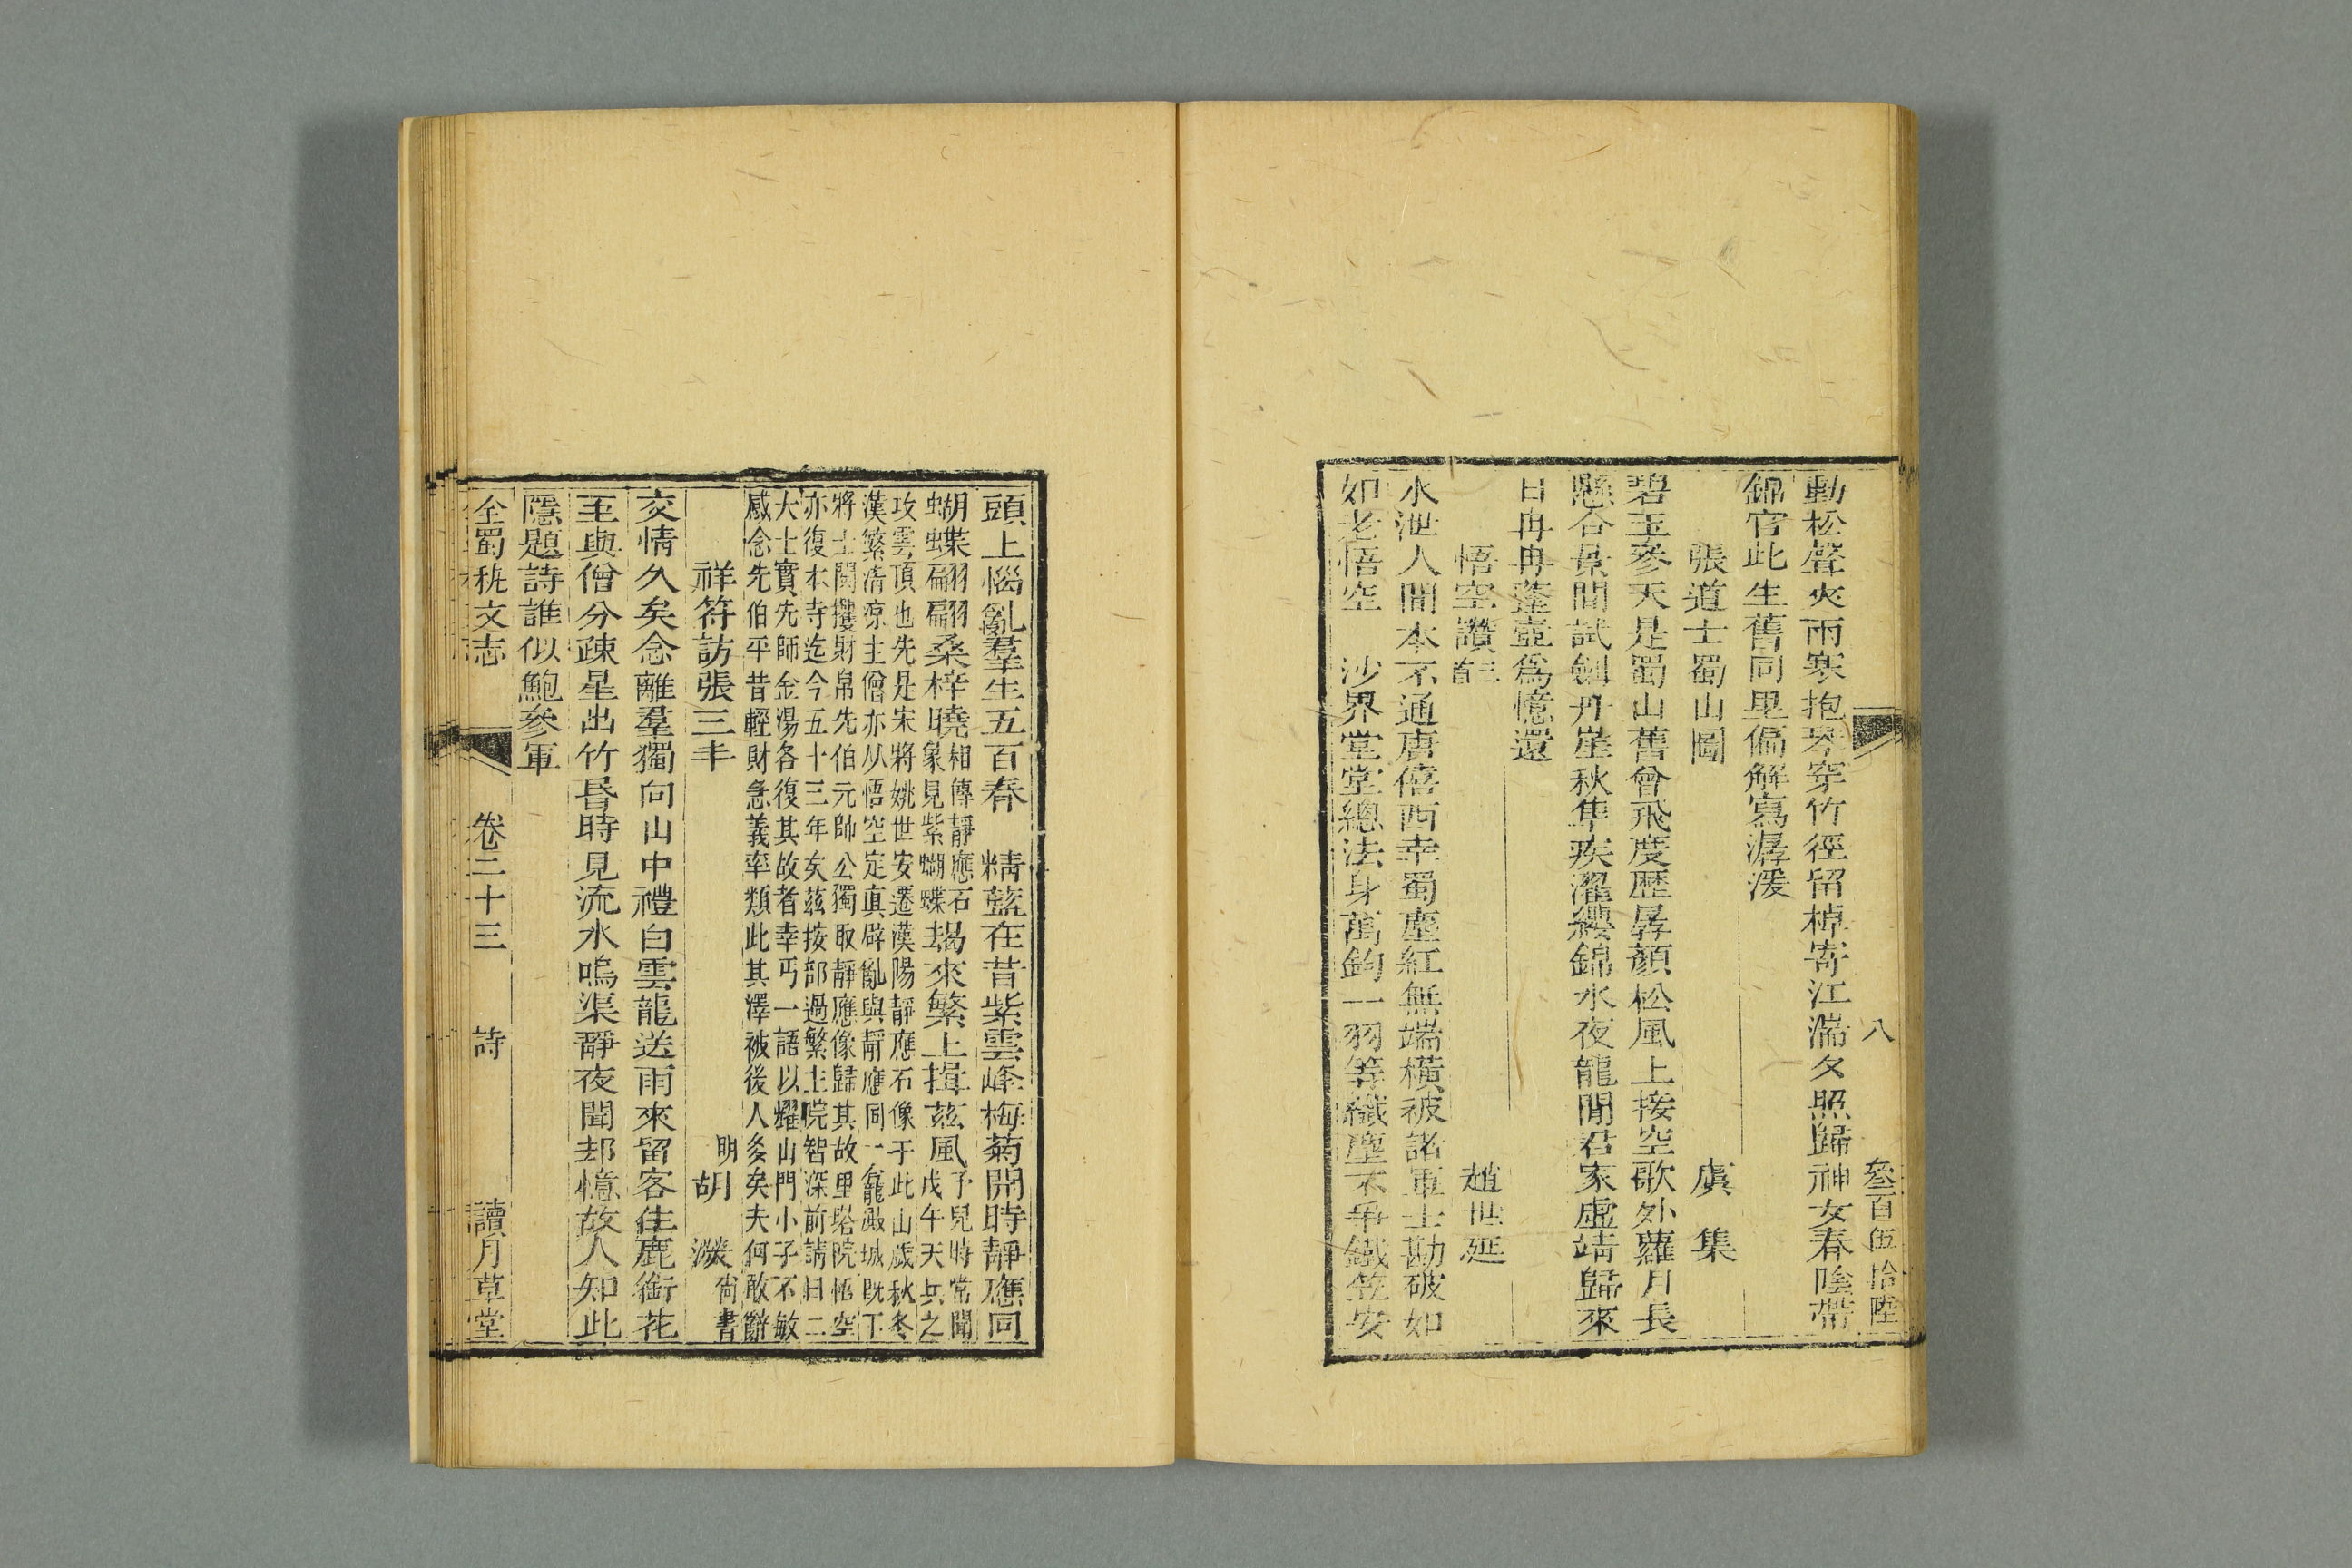 八 叁百伍拾陸
動松聲夾雨寒抱琴穿竹徑留棹寄江湍夕照歸神女春陰帶
錦官此生舊同里偏解寫潺湲
張道士蜀山圖 虞集
碧玉參天是蜀山舊曾飛度歷孱顏松風上接空歌外蘿月長
懸谷景間試劍丹崖秋隼疾濯纓錦水夜龍閒君家虛靖歸來
日冉冉蓬壺爲憶還
悟空讚 趙世延
水泄人間本不通唐僖西幸蜀塵紅無端橫被諸軍士勘破如
如老悟空 沙界堂堂總法身萬鈞一羽等纖塵不爭鐵笠安
頭上惱亂羣生五百春 精藍在昔紫雲峰梅菊開時靜應同
蝴蝶翩翩桑梓曉相傳靜應石象見紫蝴蝶朅來繁上揖茲風予兒時常聞戊午天兵之
攻雲頂也先是宋將姚世安遷漢陽靜應石像于此山歲秋冬
漢繁清凉主僧亦以悟空定眞辟亂與靜應同一龕瀫城既下
將士閧攫財帛先伯元帥公獨取靜應像歸其故里塔院悟空
亦復本寺迄今五十三年矣茲按部過繁主院智深前請曰二
大士實先師金湯各復其故者幸丐一語以耀山門小子不敏
感念先伯平昔輕財急義率類此其澤被後人多矣夫何敢辭
祥符訪張三丰 明胡濙尙書
交情久矣念離羣獨向山中禮白雲龍送雨來留客住鹿銜花
至與僧分疎星出竹昏時見流水嗚渠靜夜聞却憶故人知此
隱題詩誰似鮑參軍
全蜀秇文志 卷二十三 詩 讀月草堂